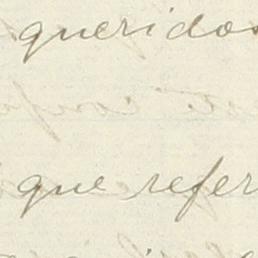 queridos
que refer